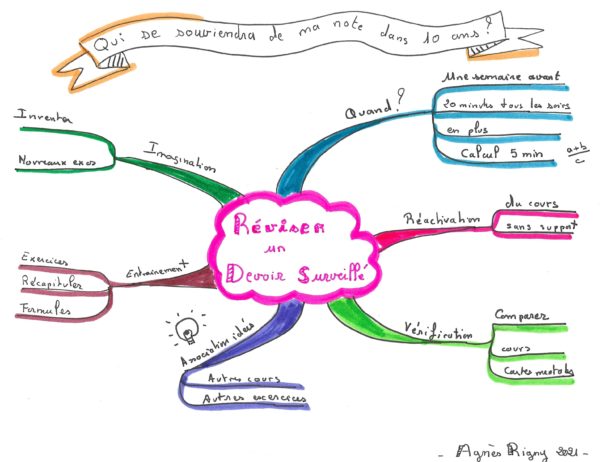 Qui se souviendra de ma note dans 10 ans ?
Réviser
un
Devoir Surveillé
Quand ?
Une semaine avant
20 minutes tous les soirs
en plus
Calcul 5 min
a+b
c
Réactivation
du cours
sans support
Vérification
Comparer
cours
Cartes mentales
Association idées
Autres cours
Autres exercices
Entrainement
Exercices
Récapituler
Formules
Imagination
Inventer
Nouveaux exos
- Agnès Rigny 2021 -